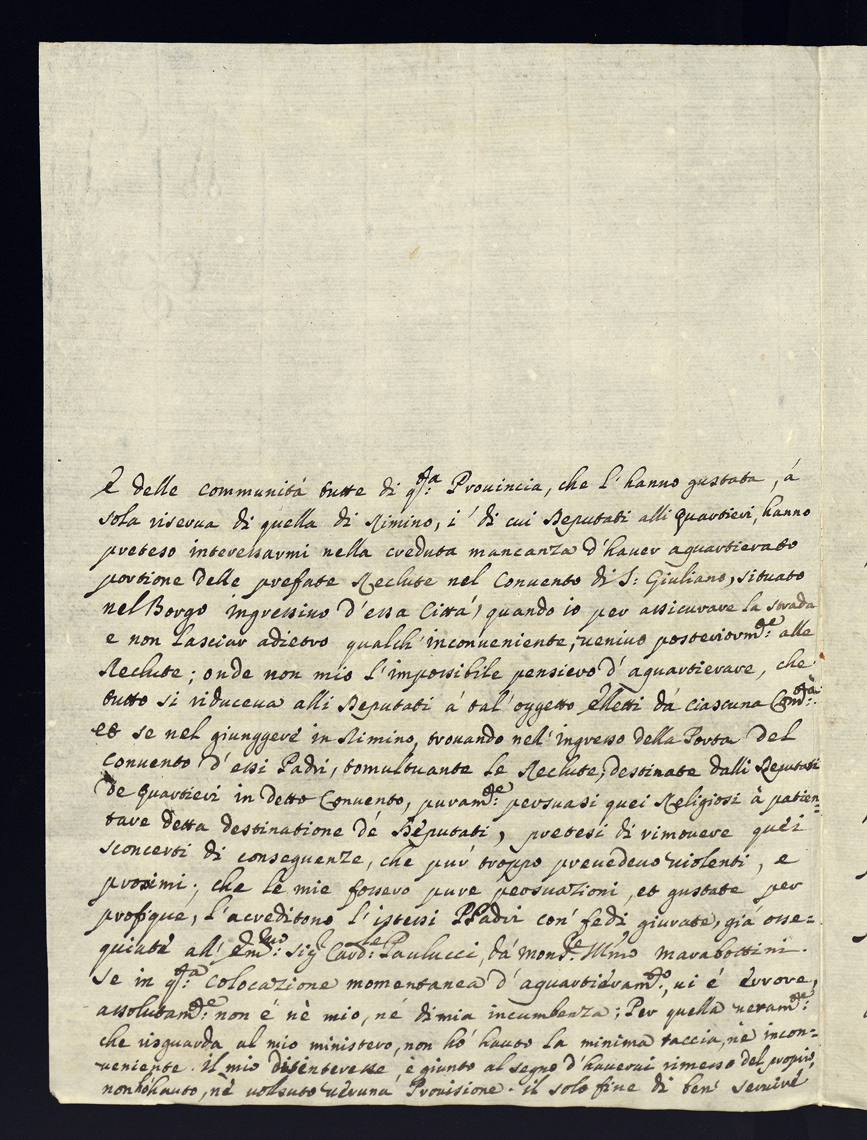 E delle Communità tutte di q.sta Prouincia, che l'hanno gustata, á
sola riserua di quella di Rimino, i' di cui Deputati alli quartieri, hanno
preteso interessarmi nella creduta mancanza d'hauer aquartierato
portione delle prefate Reclute nel Conuento di S: Giuliano, situato
nel Borgo ingressiuo d'essa Città, quando io per assicurare la strada
e non lasciar adietro qualch'inconueniente, ueniuo posteriorm.te alle
Reclute; onde non mio l'impossibile pensiero d'aquartierare, che
tutto si riduceua alli Deputati á tal'oggetto elletti dá ciascuna Com.tà:
et se nel giunggere in Rimino, trouando nell'ingresso della Porta del
Conuento d'essi Padri, tomultuante le Reclute, destinate dalli Deputati
de quartieri in detto Conuento, puram.te persuasi quei Religiosi à patien=
tare detta destinatione dé Deputati, pretesi di rimouere quei
sconcerti di conseguenze, che pur troppo preuedeuo uiolenti, e
prosimi; che le mie fossero pure persuazioni, et gustate per
profique, l'acreditono l'istessi PPadri con' fedi giurate, giá osse=
quiate all' Em.mo Sig.r Card.le Paulucci, dá mons.re Ill.mo Marabottini.
Se in q.sta colocazione momentanea d'aquartieram.to, ui é errore,
assolutam.te non é nè mio, né di mia incumbenza; Per quella ueram.te
che risguarda al mio ministero, non hó hauto la minima taccia, nè incon=
ueniente. il mio disenteresse, è giunto al segno d'hauerui rimesso del proprio,
non hó hauto, nè uolsuto ueruna Prouisione. il solo fine di ben' seruire